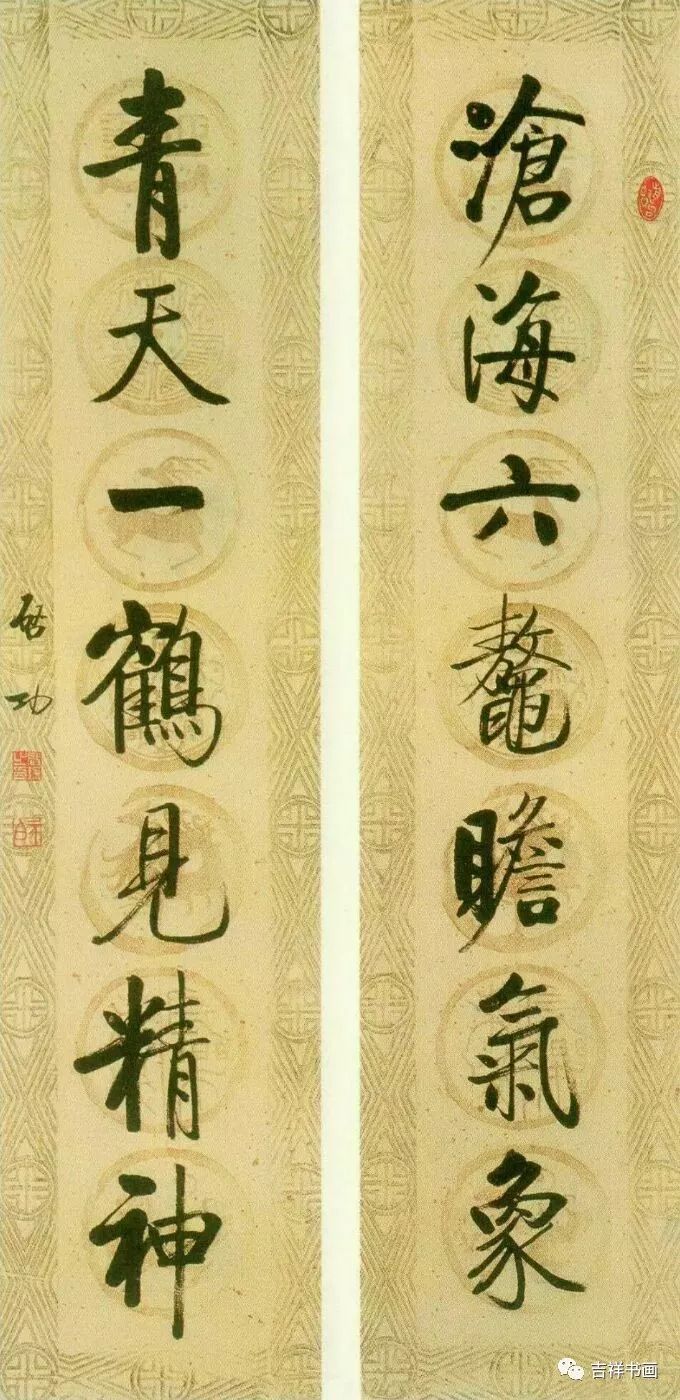 滄海六鼇瞻氣象
青天一鶴見精神
啓功
吉祥书画